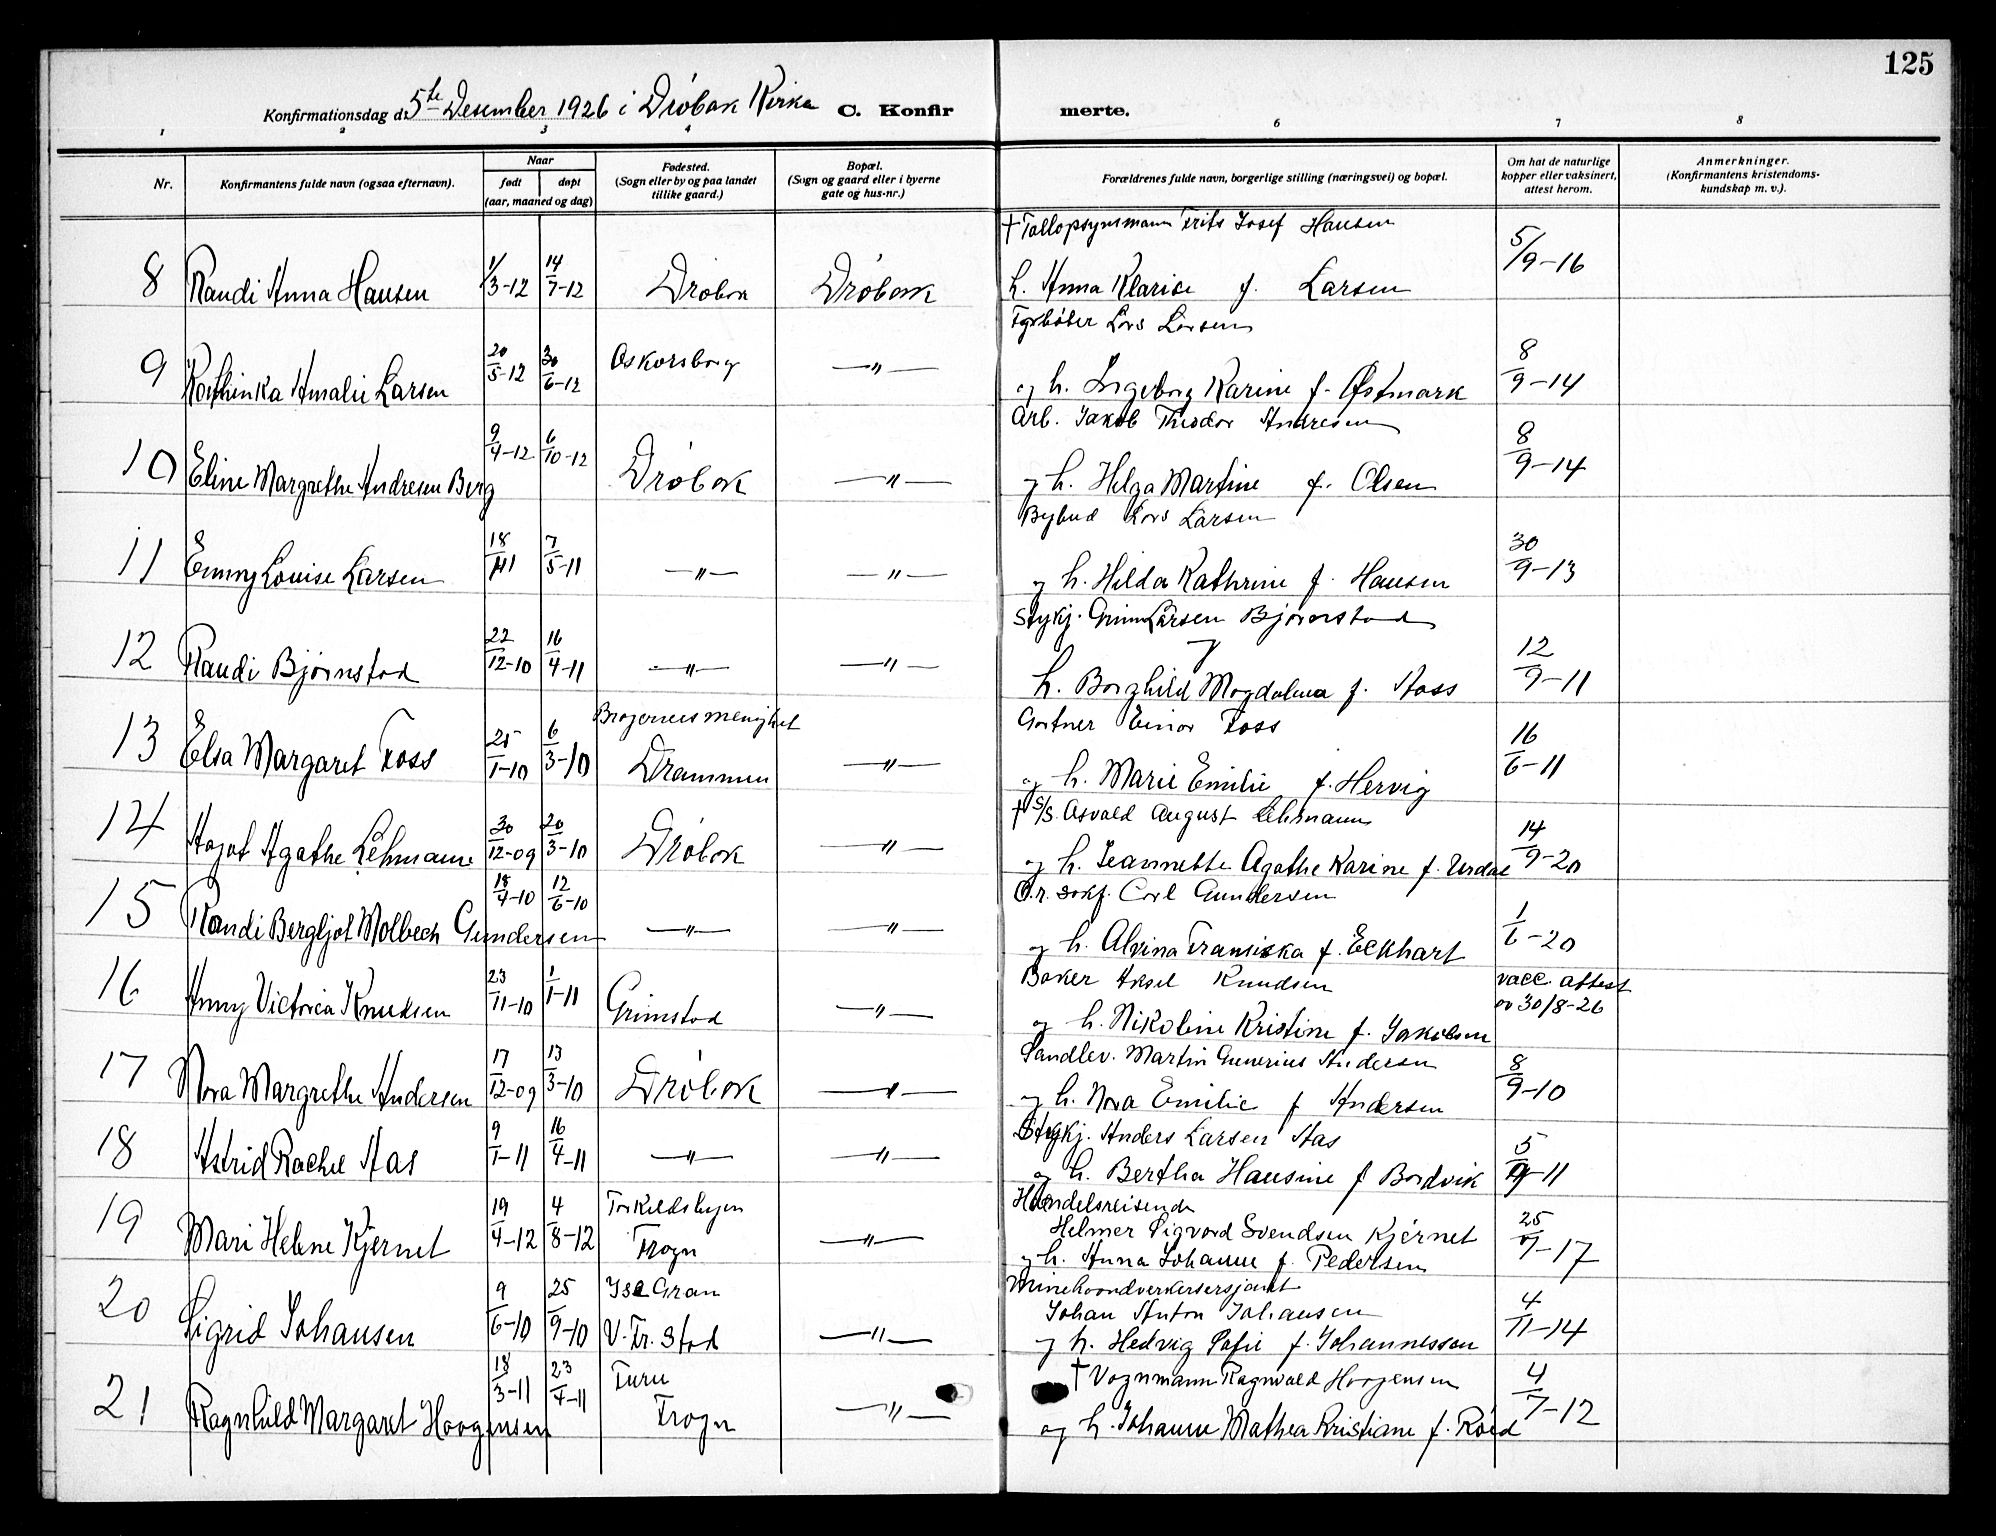 125
Konfirmationsdag d. 5te Desember 1926 i Drøbak Kirke C. Konfirmerte.
1 2 3 4 6 7 8
Nr. Konfirmantens fulde navn (ogsaa efternavn). Naar født døpt (aar, maaned og dag) Fødested. (Sogn eller by og paa landet tillike gaard.) Bopæl. (Sogn og gaard eller i byerne gate og hus-nr.) Forældrenes fulde navn, borgerlige stilling (næringsvei) og bopæl. Om hat de naturlige kopper eller vaksinert, attest herom. Anmerkninger. (Konfirmantens kristendoms-kundskap m. v.).
† Tollopsynsmann Frits Josef Hansen
8 Randi Anna Hansen 1/3-12 14/7-12 Drøbak Drøbak h. Anna Klarise f. Larsen 5/9-16
Fyrbøter Lars Larsen
9 Kathinka Amalie Larsen 20/5-12 30/6-12 Oskarsborg —"— og h. Ingeborg Karine f. Østmark 8/9-14
Arb. Jakob Theodor Andresen
10 Eline Margrethe Andresen Berg 9/4-12 6/10-12 Drøbak —"— og h. Helga Martine f. Olsen 8/9-14
Bybud Lars Larsen
11 Emmy Louise Larsen 18/ 7/5-11 —"— —"— og h. Hilda Kathrine f. Hansen 30/9-13
Stykj. Larsen Bjørnstad
12 Randi Bjørnstad 22/12-10 16/4-11 —"— —"— og h. Borghild Magdalena f. Aass 12/9-11
Gartner Einar Foss
13 Elsa Margaret Foss 25/1-10 6/3-10 Bragernes menighet Drammen —"— og h. Marie Emilie f. Hervig 16/6-11
† S/S. Asvald August Lehmann
14 Aagot Agathe Lehmann 30/12-09 20/3-10 Drøbak —"— og h. Jeannette Agathe Karine f. Urdal 14/9-20
O.r. sakf. Carl Gundersen
15 Randi Bergljot Molbech Gundersen 18/4-10 12/6-10 —"— —"— og h. Alvina Fransiska f. Eckhart 1/6-20
Baker Aksel Knudsen
16 Anny Victoria Knudsen 23/11-10 1/1-11 Grimstad —"— og h. Nikoline Kristine f. Jakobsen vacc. attest av 30/8-26
Sandlev. Martin Gunerius Andersen
17 Nora Margrethe Andersen 17/12-09 13/3-10 Drøbak —"— og h. Nora Emilie f Andersen 8/9-10
Stykj. Anders Larsen Aas
18 Astrid Rachel Aas 9/1-11 16/4-11 —"— —"— og h. Bertha Hansine f Bordvik 5/9-11
Handelsreisende
Helmer Sigvard Svendsen Kjernet
19 Mari Helene Kjernet 19/4-12 4/8-12 Torkildshegn Frogn —"— og h. Anna Johanne f. Pedersen 25/7-17
Minehaandverkersersjant
Johan Anton Johansen
20 Sigrid Johansen 9/6-10 25/9-10 Gran V. Fr. Stad —"— og h. Hedvig Sofie f. Johannesson 4/11-14
† Vognmann Ragnvald Haagensen
21 Ragnhild Margaret Haagensen 18/3-11 23/4-11 Furu Frogn —"— og h. Johanne Mathea Kristiane f. Røed 4/7-12